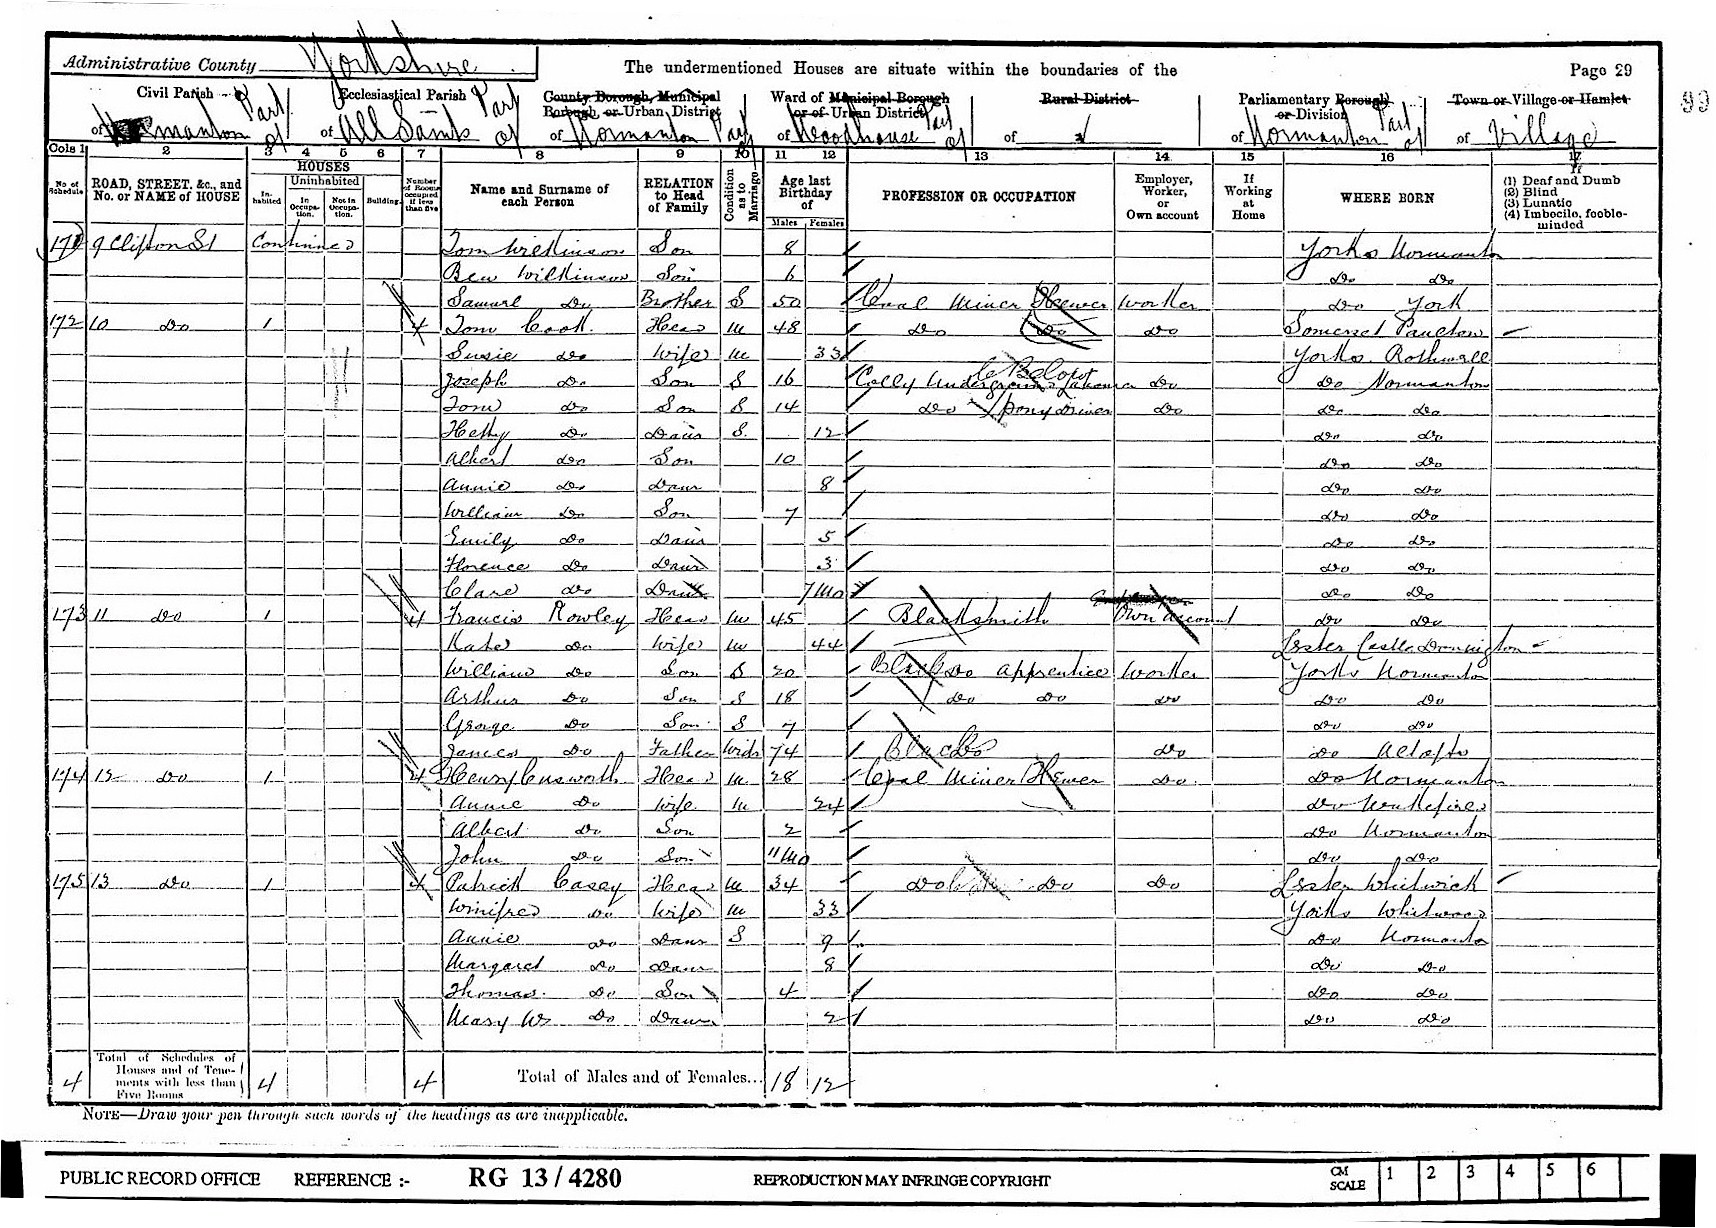 Administrative County Yorkshire
The undermentioned Houses are situate within the boundaries of the
Page 29
99
Civil Parish
Ecclesiastical Parish
County Borough, Municipal Borough or Urban District
Ward of Municipal Borough or of Urban District
Rural District
Parliamentary Borough or Division
Town or Village or Hamlet
of Normanton Part of
of All Saints Part of
of Normanton Part of
of Woodhouse Part of
of
of Normanton Part of
of Village
Cols 1 2 3 4 5 6 7 8 9 10 11 12 13 14 15 16 17
No of Schedule
ROAD, STREET, &c., and No. or NAME of HOUSE
HOUSES
Inhabited
Uninhabited
In Occupation.
Not in Occupation.
Building.
Number of Rooms occupied if less than five
Name and Surname of each Person
RELATION to Head of Family
Condition as to Marriage
Age last Birthday of
Males Females
PROFESSION OR OCCUPATION
Employer, Worker, or Own account
If Working at Home
WHERE BORN
If
(1) Deaf and Dumb
(2) Blind
(3) Lunatic
(4) Imbecile, feeble-minded
171 9 Clifton St Continued Tom Wilkinson Son 8 Yorks Normanton
Ben Wilkinson Son 6 Do Do
Samuel Do Brother S 50 Coal Miner Hewer Worker Do York
172 10 Do 1 4 Tom Cook Head M 48 Do Do Do Somerset Paulton
Susie Do Wife M 33 Yorks Rothwell
Joseph Do Son S 16 Colly Underground Do Do Normanton
Tom Do Son S 14 Do Pony Driver Do Do Do
Hetty Do Daur S. 12 Do Do
Albert Do Son 10 Do Do
Annie Do Daur 8 Do Do
William Do Son 7 Do Do
Emily Do Daur 5 Do Do
Florence Do Daur 3 Do Do
Clara Do Daur 7 Mo Do Do
173 11 Do 1 4 Francis Rowley Head M 45 Blacksmith Own account Do Do
Kate Do Wife M 44 Lester Castle Donnington
William Do Son S 20 Black Do apprentice Worker Yorks Normanton
Arthur Do Son S 18 Do Do Do Do Do
George Do Son S 7 Do Do
James Do Father Widr 74 Do Do Do Altofts
174 12 Do 1 4 Henry Cusworth Head M 28 Coal Miner Hewer Do Do Normanton
Annie Do Wife M 24 Do Wakefield
Albert Do Son 2 Do Normanton
John Do Son 11 Mo Do Do
175 13 Do 1 4 Patrick Casey Head M 34 Do Do Do Lester Whitwick
Winifred Do Wife M 33 Yorks Whitwood
Annie Do Daur S 9 Do Normanton
Margaret Do Daur 8 Do Do
Thomas Do Son 4 Do Do
Mary W Do Daur 2 Do Do
4 Total of Schedules of Houses and of Tenements with less than Five Rooms 4 4 Total of Males and of Females... 18 12
NOTE—Draw your pen through such words of the headings as are inapplicable.
PUBLIC RECORD OFFICE REFERENCE :- RG 13 / 4280 REPRODUCTION MAY INFRINGE COPYRIGHT CM SCALE 1 2 3 4 5 6